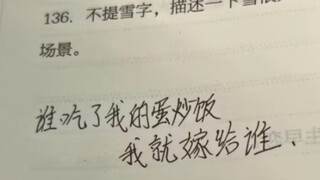 136. 不提雪字，描述一下雪很
场景。
谁吃了我的蛋炒饭
我就嫁给谁.